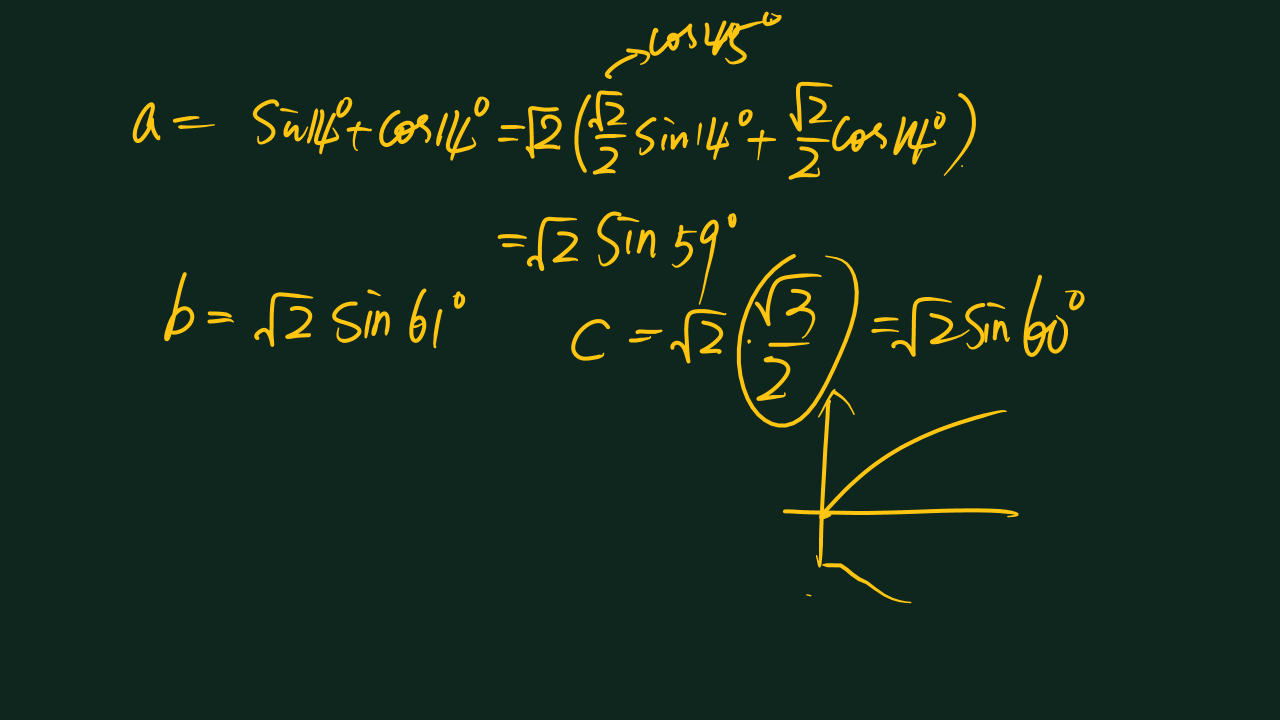 cos45°
a = sin14°+cos14° =√2(√2/2 sin14°+√2/2 cos14°)
=√2 sin 59°
b = √2 sin 61° c = √2·√3/2 =√2 sin 60°